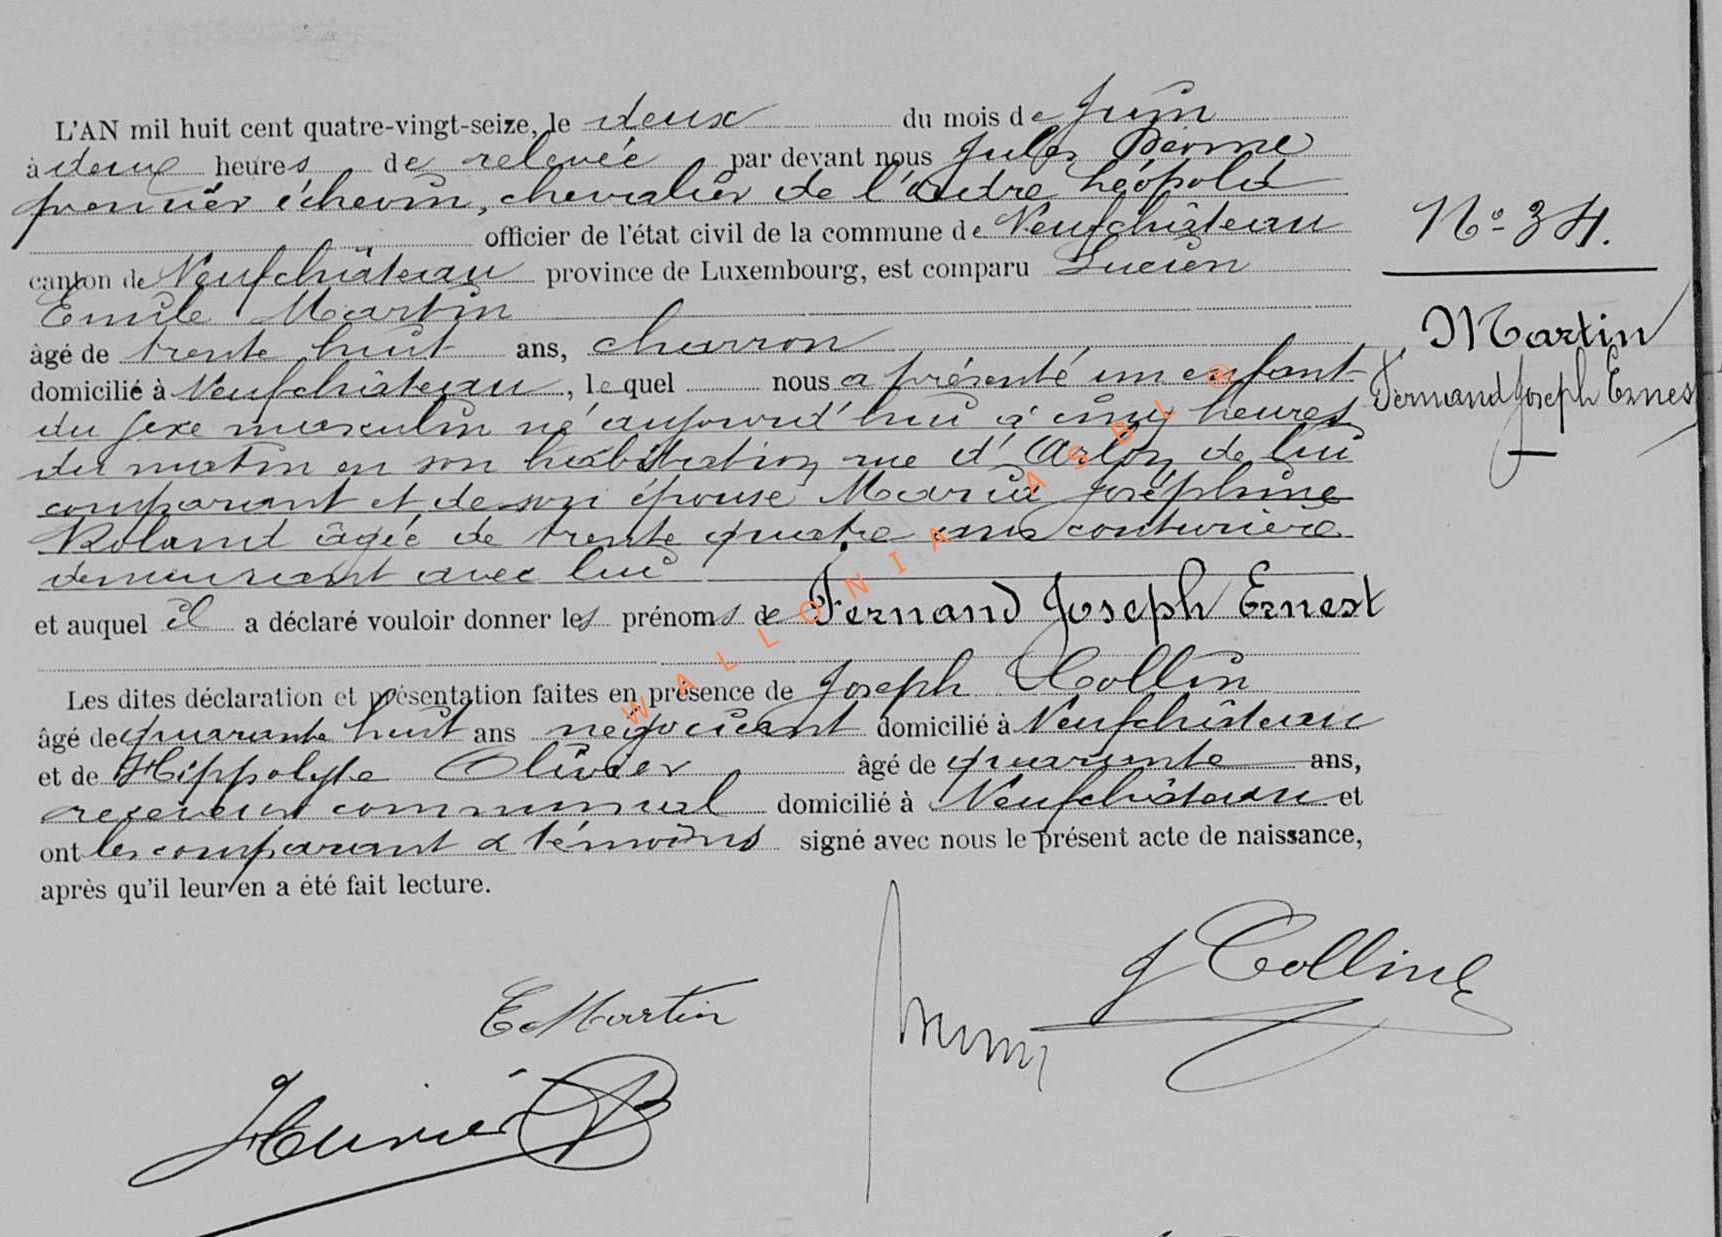 L'AN mil huit cent quatre-vingt-seize, le deux du mois de Juin
à deux heures de relevée par devant nous Jules
premier échevin, chevalier de l'ordre Léopold
officier de l'état civil de la commune de Neufchâteau
canton de Neufchâteau province de Luxembourg, est comparu Lucien
Emile Martin
âgé de trente huit ans, charron
domicilié à Neufchâteau, lequel nous a présenté un enfant
du sexe masculin né aujourd'hui à cinq heures
du matin en son habitation rue d'Arlon, de lui
comparant et de son épouse Maria Joséphine
Roland âgée de trente quatre ans couturière
demeurant avec lui
et auquel il a déclaré vouloir donner les prénoms de Fernand Joseph Ernest
Les dites déclaration et présentation faites en présence de Joseph Collin
âgé de quarante huit ans négociant domicilié à Neufchâteau
et de Hippolyte Olivier âgé de quarante ans,
receveur communal domicilié à Neufchâteau et
ont les comparant & témoins signé avec nous le présent acte de naissance,
après qu'il leur en a été fait lecture.
N° 34.
Martin
Fernand Joseph Ernest
E Martin
J Collin
WALLONIA ASBL ®